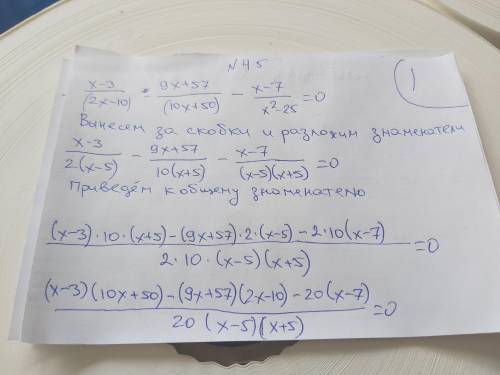 N 45
(x-3)/(2x-10) - (9x+57)/(10x+50) - (x-7)/(x²-25) =0
1
Вынесем за скобки и разложим знаменатели
(x-3)/(2(x-5)) - (9x+57)/(10(x+5)) - (x-7)/((x-5)(x+5)) =0
Приведём к общему знаменателю
((x-3)·10·(x+5)-(9x+57)·2·(x-5)-2·10(x-7))/(2·10·(x-5)(x+5)) =0
((x-3)(10x+50)-(9x+57)(2x-10)-20(x-7))/(20(x-5)(x+5)) =0